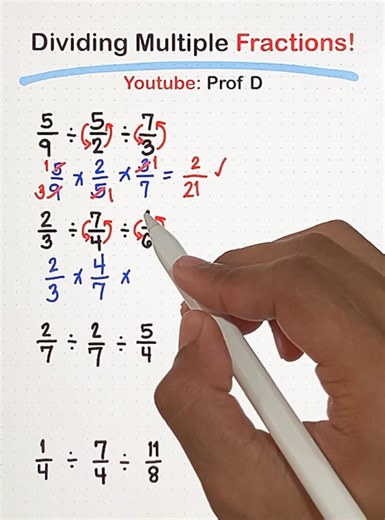 Dividing Multiple Fractions!
Youtube: Prof D
5/9 ÷ 5/2 ÷ 7/3
1 5/9 3 × 2/5 1 × 3/7 1 = 2/21 ✓
2/3 ÷ 7/4 ÷ /6
2/3 × 4/7 ×
2/7 ÷ 2/7 ÷ 5/4
1/4 ÷ 7/4 ÷ 11/8